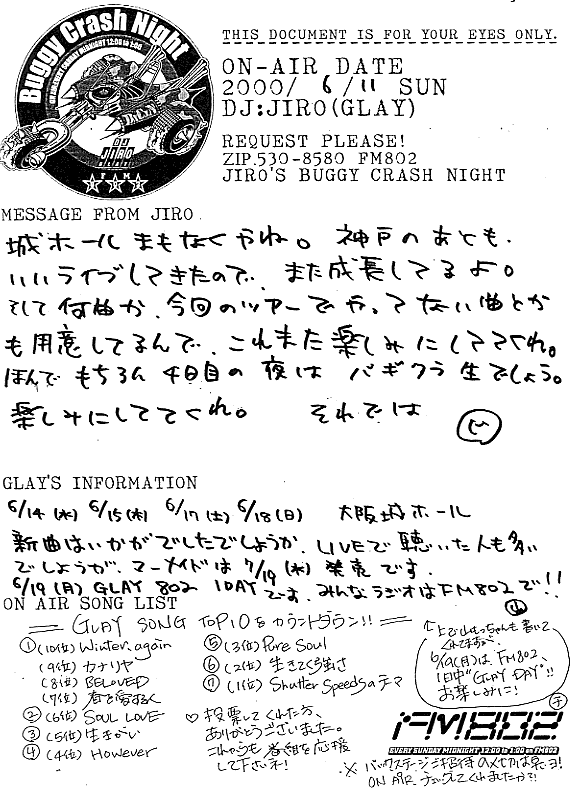 Buggy Crash Night
EVERY SUNDAY MIDNIGHT 12:00 to 1:00
DJ
JIRO
GLAY
THIS DOCUMENT IS FOR YOUR EYES ONLY.
ON-AIR DATE
2000/ 6/11 SUN
DJ:JIRO(GLAY)
REQUEST PLEASE!
ZIP.530-8580 FM802
JIRO'S BUGGY CRASH NIGHT
MESSAGE FROM JIRO
城ホールまもなくやね。神戸のあとも、
いいライブしてきたので、また成長してるよ。
そして何曲か、今回のツアーでやってない曲とか
も用意してるんで、これまた楽しみにしててくれ。
ほんでもちろん4日目の夜はバギクラ生でしょう。
楽しみにしててくれ。 それでは
GLAY'S INFORMATION
6/14(水) 6/15(木) 6/17(土) 6/18(日) 大阪城ホール
新曲はいかがでしたでしょうか、LIVEで聴いた人も多い
でしょうが、マーメイドは7/19(水)発売です。
6/19(月) GLAY 802 1DAYです。みんなラジオはFM802で!!
ON AIR SONG LIST
GLAY SONG TOP10をカウントダウン!!
①(10位) Winter, again
(9位) カナリヤ
(8位) BELOVED
(7位) 春を愛する人
②(6位) SOUL LOVE
③(5位) 生きがい
④(4位) However
⑤(3位) Pure Soul
⑥(2位) 生きてく強さ
⑦(1位) Shutter Speedsのテーマ
♡投票してくれた方、
ありがとうございました。
これからも番組を応援
して下さいネ!
↑上で山もっちゃんも書いて
くれてますが
6/19(月)はFM802
1日中"GLAY DAY"!!
お楽しみに!
FM802
EVERY SUNDAY MIDNIGHT 12:00 to 1:00 on FM802
※バックステージご招待
ON AIR チェックしてくれましたか?!